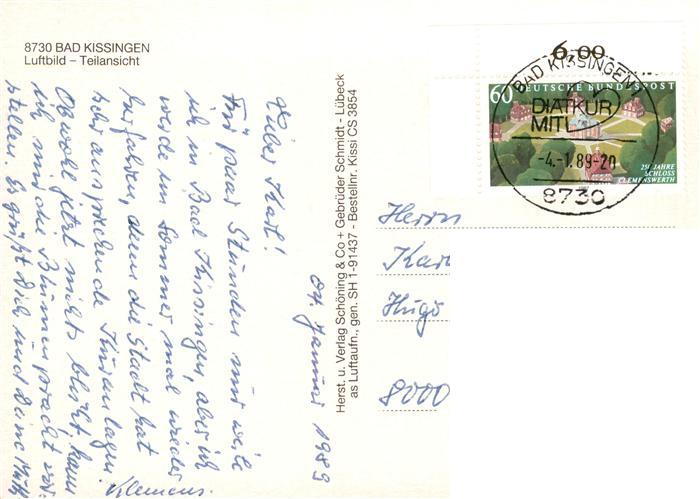 8730 BAD KISSINGEN
Luftbild – Teilansicht
04. Januar 1989
Lieber Karl!
Für paar Stunden nur weile
ich in Bad Kissingen, aber ich
werde im Sommer mal wieder
herfahren, denn die Stadt hat
sehr ansprechende Kuranlagen.
Obwohl jetzt nichts blüht, kann
ich mir die Blumenpracht vor-
stellen. Es grüßt Dich und Deine
Klemens.
Herst. u. Verlag Schöning & Co + Gebrüder Schmidt - Lübeck
as Luftaufn., gen. SH 1-91437 - Bestellnr. Kissi CS 3854
6,00
60 DEUTSCHE BUNDESPOST
250 JAHRE
SCHLOSS
CLEMENSWERTH
BAD KISSINGEN 1
DIÄTKUR
MIT
-4.-1.89-20
8730
Herrn
Karl
Hugo
8000